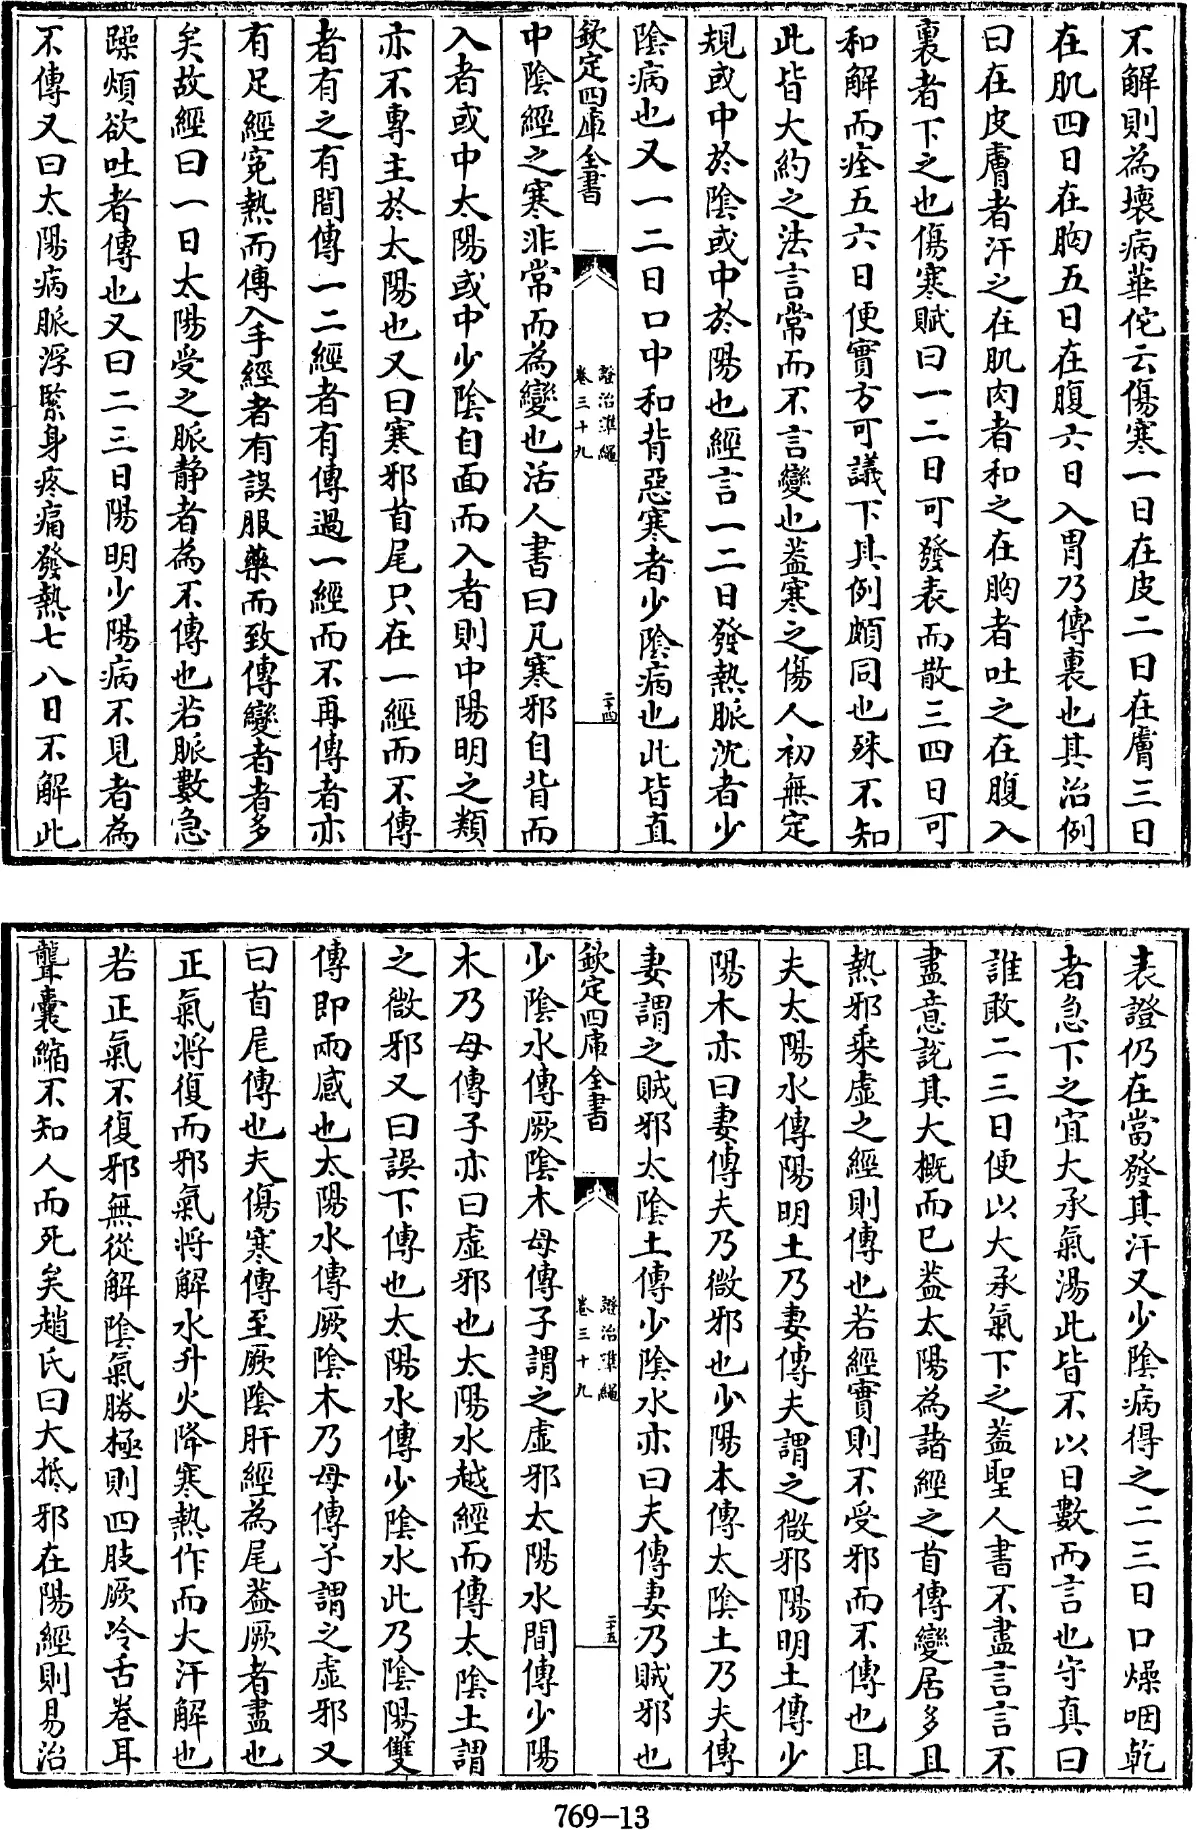 不解則為壞病華佗云傷寒一日在皮二日在膚三日
在肌四日在胸五日在腹六日入胃乃傳裏也其治例
曰在皮膚者汗之在肌肉者和之在胸者吐之在腹入
裏者下之也傷寒賦曰一二日可發表而散三四日可
和解而痊五六日便實方可議下其例頗同也殊不知
此皆大約之法言常而不言變也葢寒之傷人初無定
規或中於陰或中於陽也經言一二日發熱脈沈者少
陰病也又一二日口中和背惡寒者少陰病也此皆直
欽定四庫全書
證治準繩
卷三十九
二十四
中陰經之寒非常而為變也活人書曰凡寒邪自背而
入者或中太陽或中少陰自面而入者則中陽明之類
亦不專主於太陽也又曰寒邪首尾只在一經而不傳
者有之有間傳一二經者有傳過一經而不再傳者亦
有足經寃熱而傳入手經者有誤服藥而致傳變者者多
矣故經曰一日太陽受之脈靜者為不傳也若脈數急
躁煩欲吐者傳也又曰二三日陽明少陽病不見者為
不傳又曰太陽病脈浮緊身疼痛發熱七八日不解此
表證仍在當發其汗又少陰病得之二三日口燥咽乾
者急下之宜大承氣湯此皆不以日數而言也守真曰
誰敢二三日便以大承氣下之葢聖人書不盡言言不
盡意說其大概而已葢太陽為諸經之首傳變居多且
熱邪乘虛之經則傳也若經實則不受邪而不傳也且
夫太陽水傳陽明土乃妻傳夫謂之微邪陽明土傳少
陽木亦曰妻傳夫乃微邪也少陽本傳太陰土乃夫傳
妻謂之賊邪太陰土傳少陰水亦曰夫傳妻乃賊邪也
欽定四庫全書
證治準繩
卷三十九
二十五
少陰水傳厥陰木母傳子謂之虛邪太陽水間傳少陽
木乃母傳子亦曰虛邪也太陽水越經而傳太陰土謂
之微邪又曰誤下傳也太陽水傳少陰水此乃陰陽雙
傳即兩感也太陽水傳厥陰木乃母傳子謂之虛邪又
曰首尾傳也夫傷寒傳至厥陰肝經為尾葢厥者盡也
正氣將復而邪氣將解水升火降寒熱作而大汗解也
若正氣不復邪無從解陰氣勝極則四肢厥冷舌卷耳
聾囊縮不知人而死矣趙氏曰大抵邪在陽經則易治
769-13